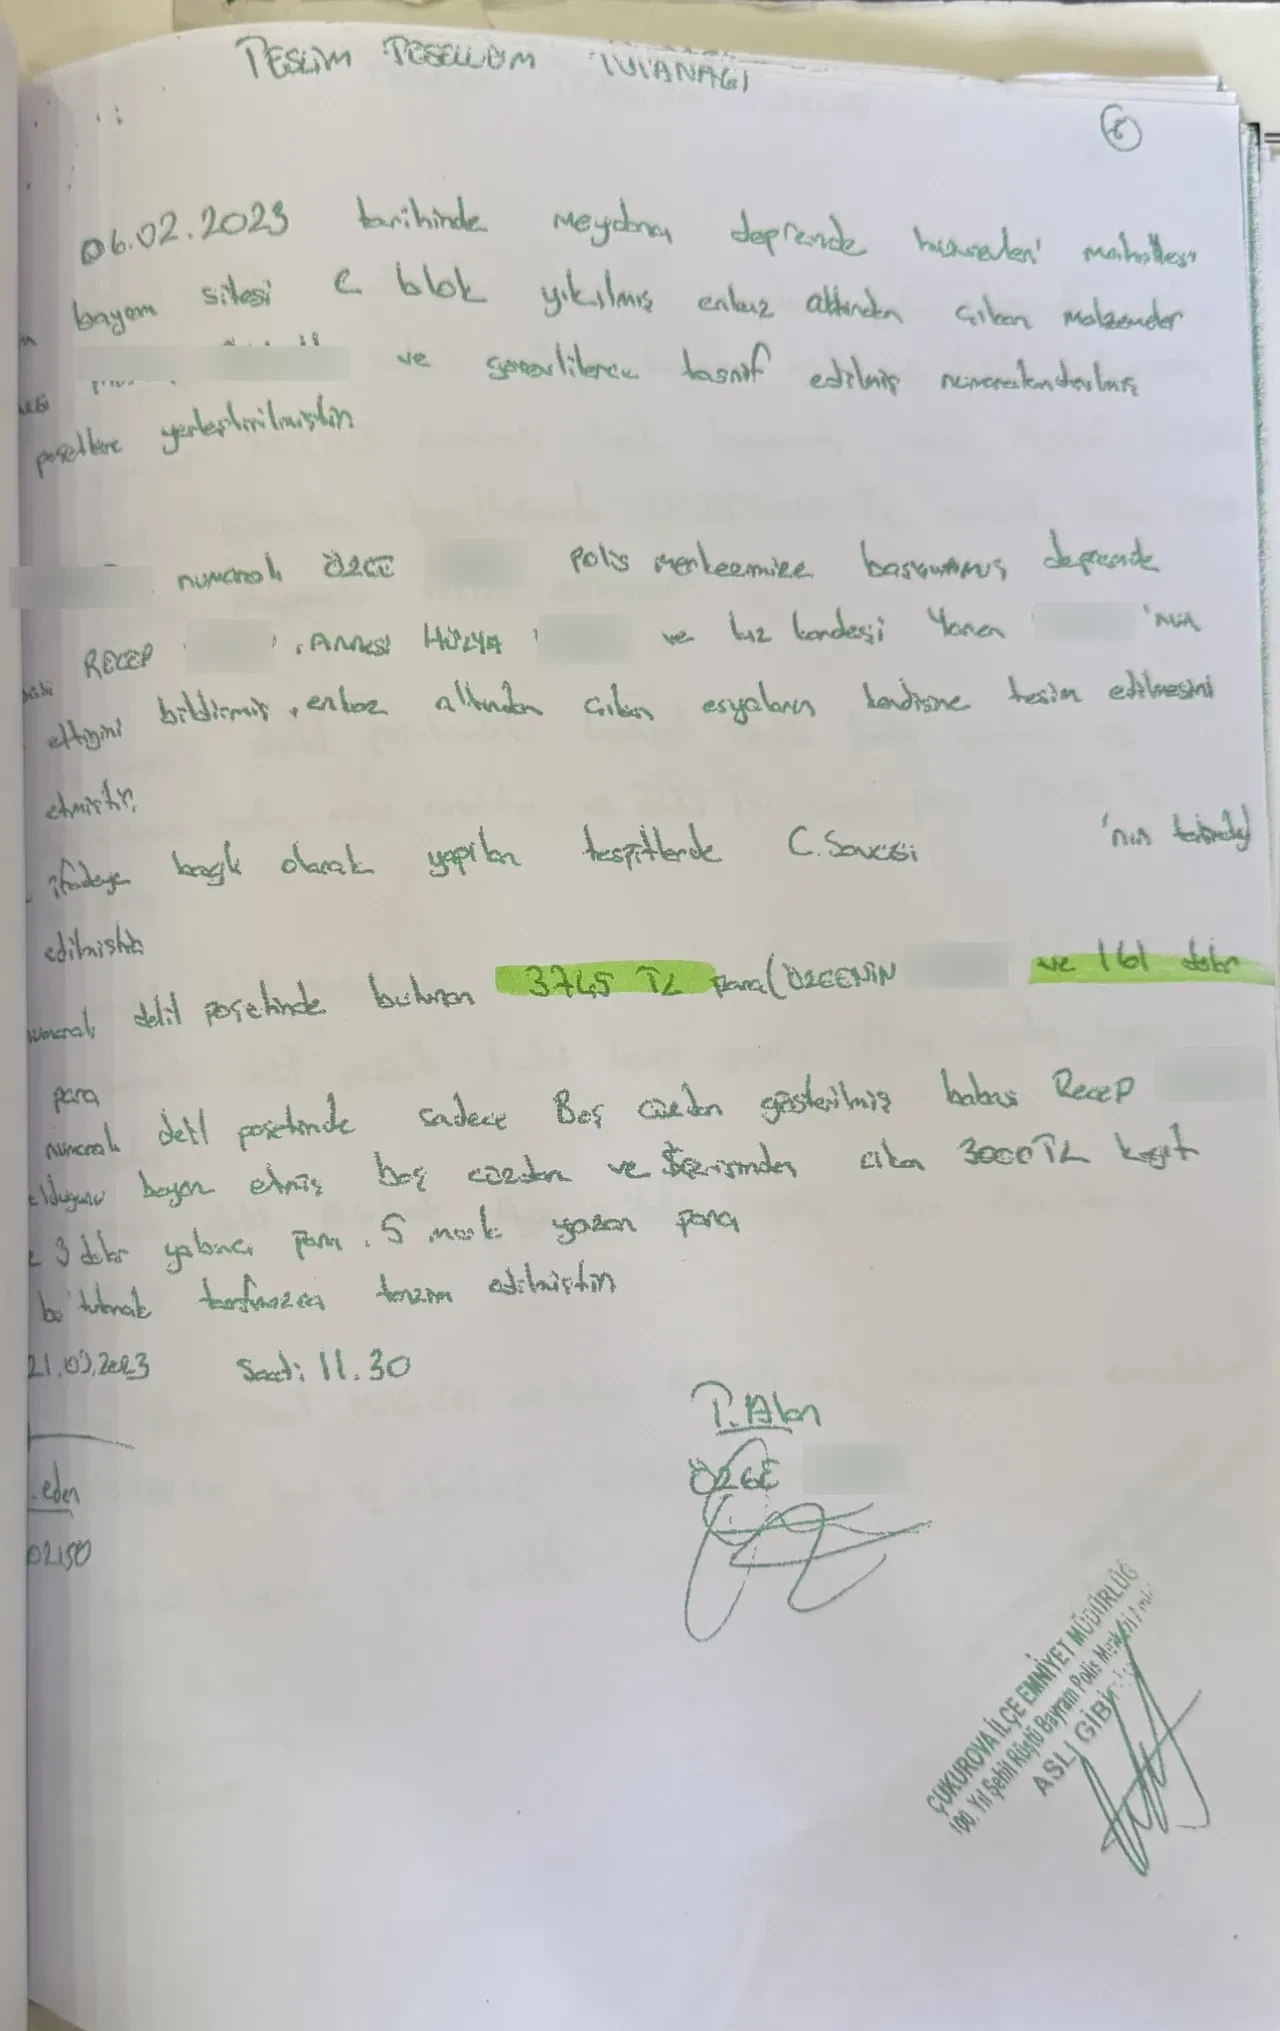 TESLİM TESELLÜM TUTANAĞI
6
06.02.2023 tarihinde meydana depremde huzurevleri mahallesi
bayam sitesi C blok yıkılmış enkaz altından çıkan malzemeler
ve görevlilerce tasnif edilmiş numaralandırılmış
poşetlere yerleştirilmiştir
numaralı ÖZGE polis merkezimize başvurmuş depremde
RECEP , ANNESİ HÜLYA ve kız kardeşi Yaren 'nın
ettiğini bildirmiş, enkaz altından çıkan eşyaların kendisine teslim edilmesini
etmiştir,
ifadeye bağlı olarak yapılan tespitlerde C. Savcısı 'nın talimatı
edilmiştir
numaralı delil poşetinde bulunan 3745 TL para (ÖZGENİN ve 161 dolar
para
numaralı delil poşetinde sadece Boş cüzdan gösterilmiş babası Recep
olduğunu beyan etmiş boş cüzdan ve içerisinden çıkan 3000 TL kağıt
3 dolar yabancı para, 5 mark yazan para
bu tutanak tarafımızca tanzim edilmiştir
21.03.2023 Saat: 11.30
T. Alan
ÖZGE
eden
02150
ÇUKUROVA İLÇE EMNİYET MÜDÜRLÜĞ
100. Yıl Şehit Rüştü Bayram Polis Merkezi Amir
ASLI GİBİ